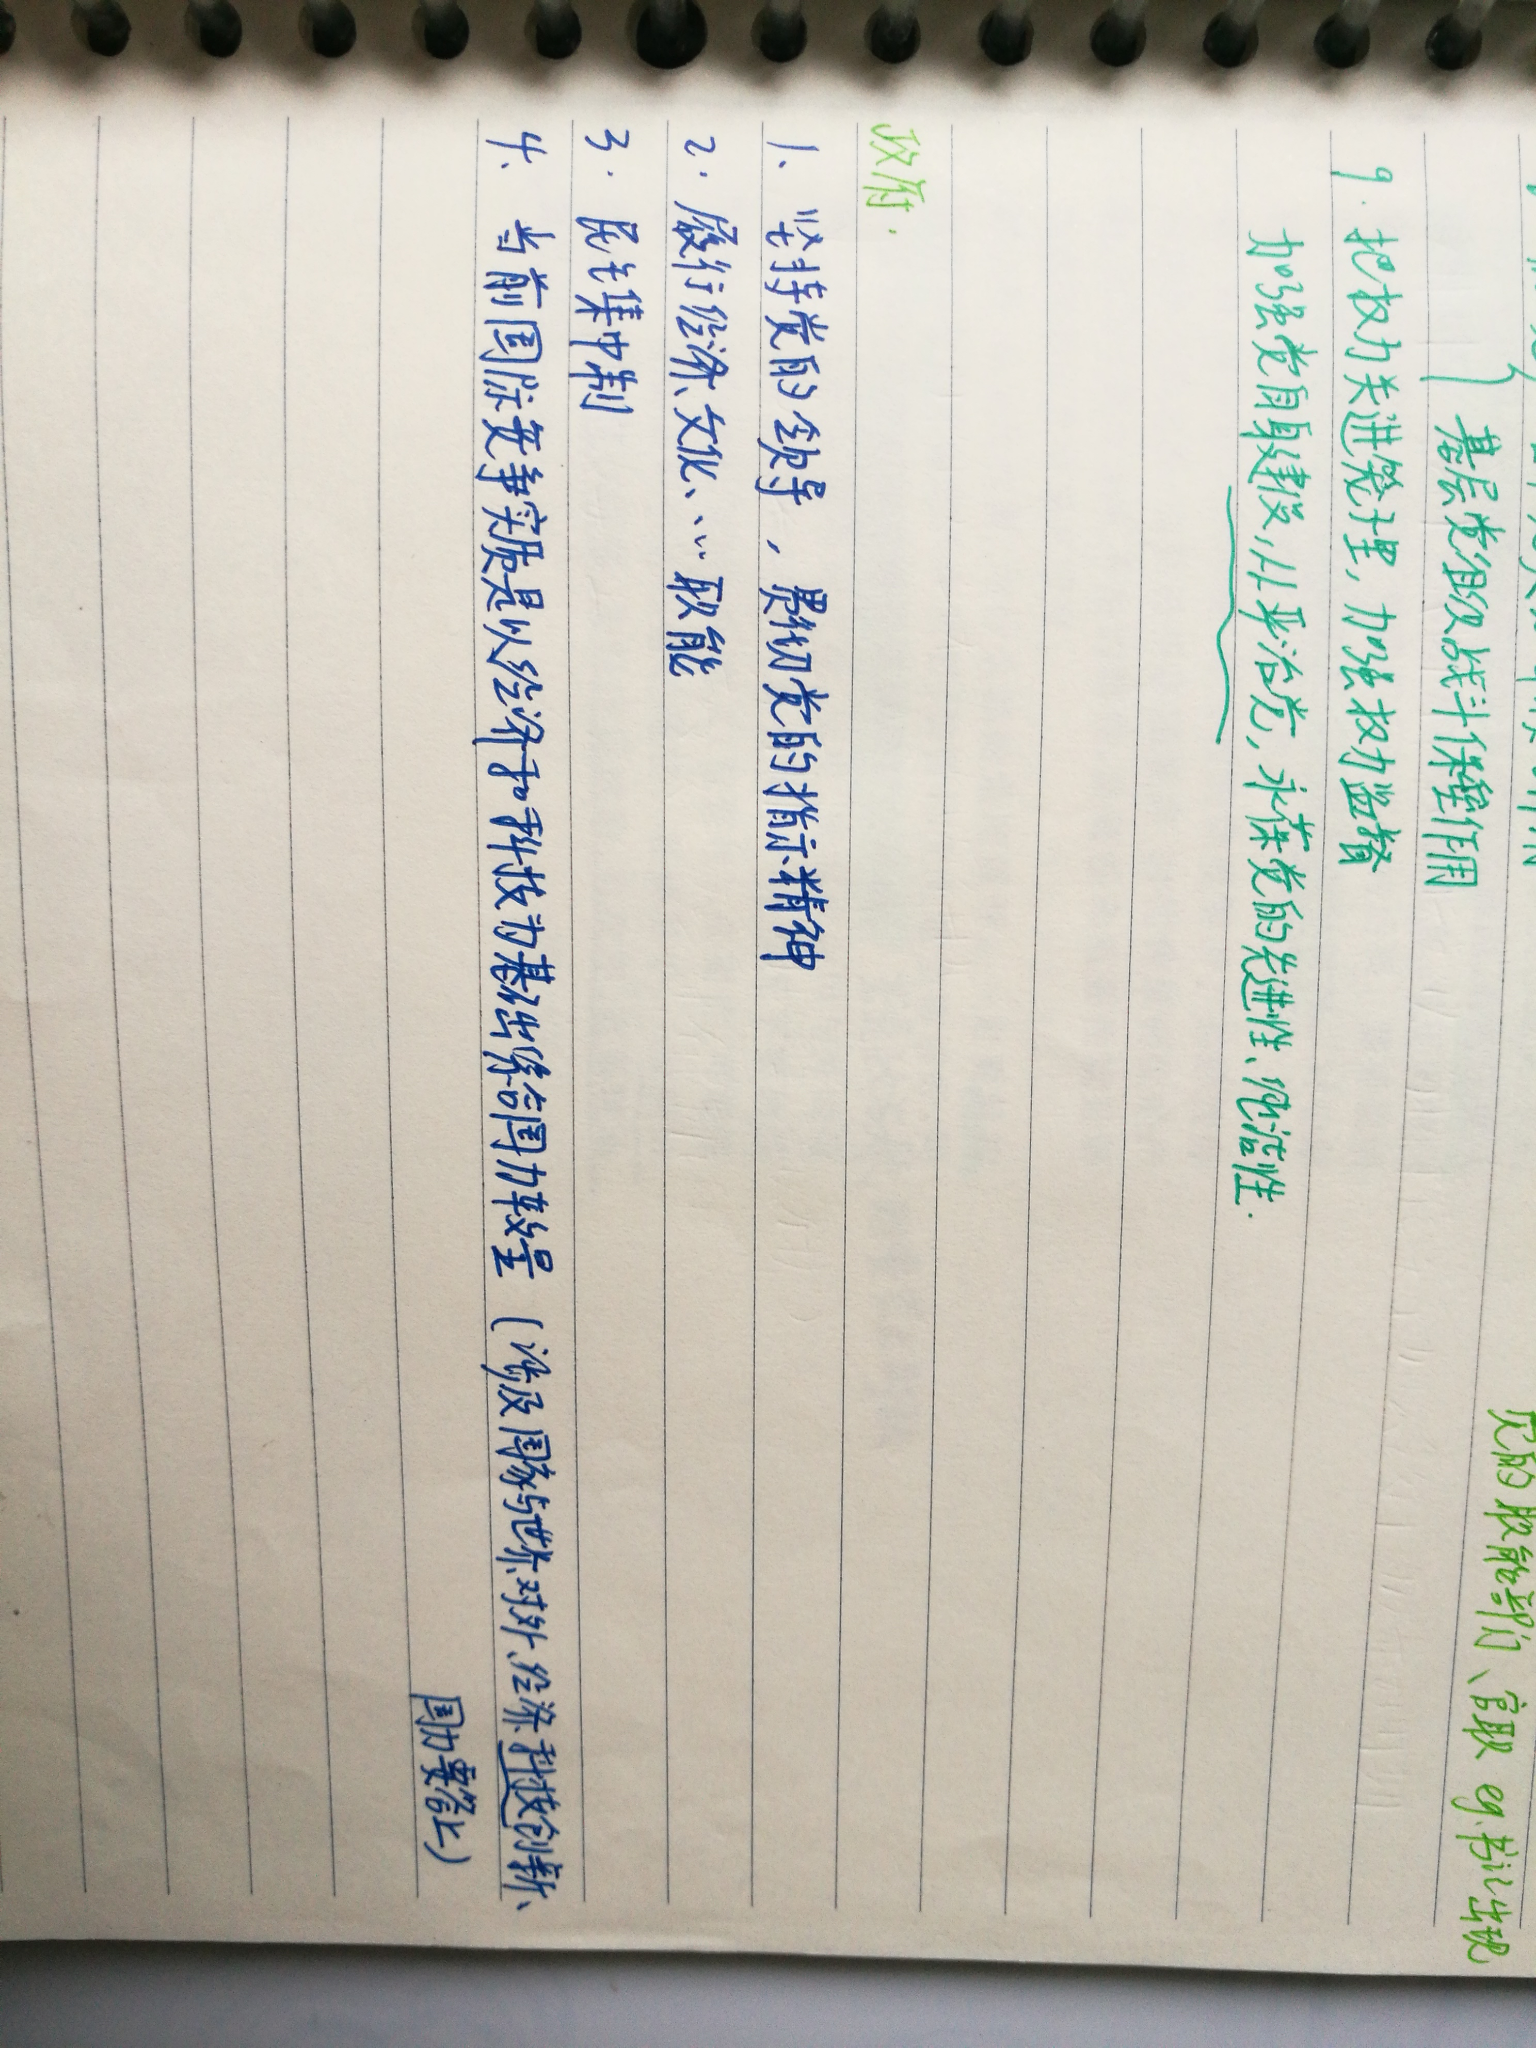 基层党组织战斗堡垒作用
党的职能部门、官职 eg.书记出现
9. 把权力关进笼子里，加强权力监督
加强党自身建设，从严治党，永葆党的先进性、纯洁性.
政府.
1、坚持党的领导，贯彻党的指示精神
2. 履行经济、文化、…职能
3. 民主集中制
4、当前国际竞争实质是以经济和科技为基础综合国力较量（涉及国家与世界、对外、经济、科技创新、
国力要答上）